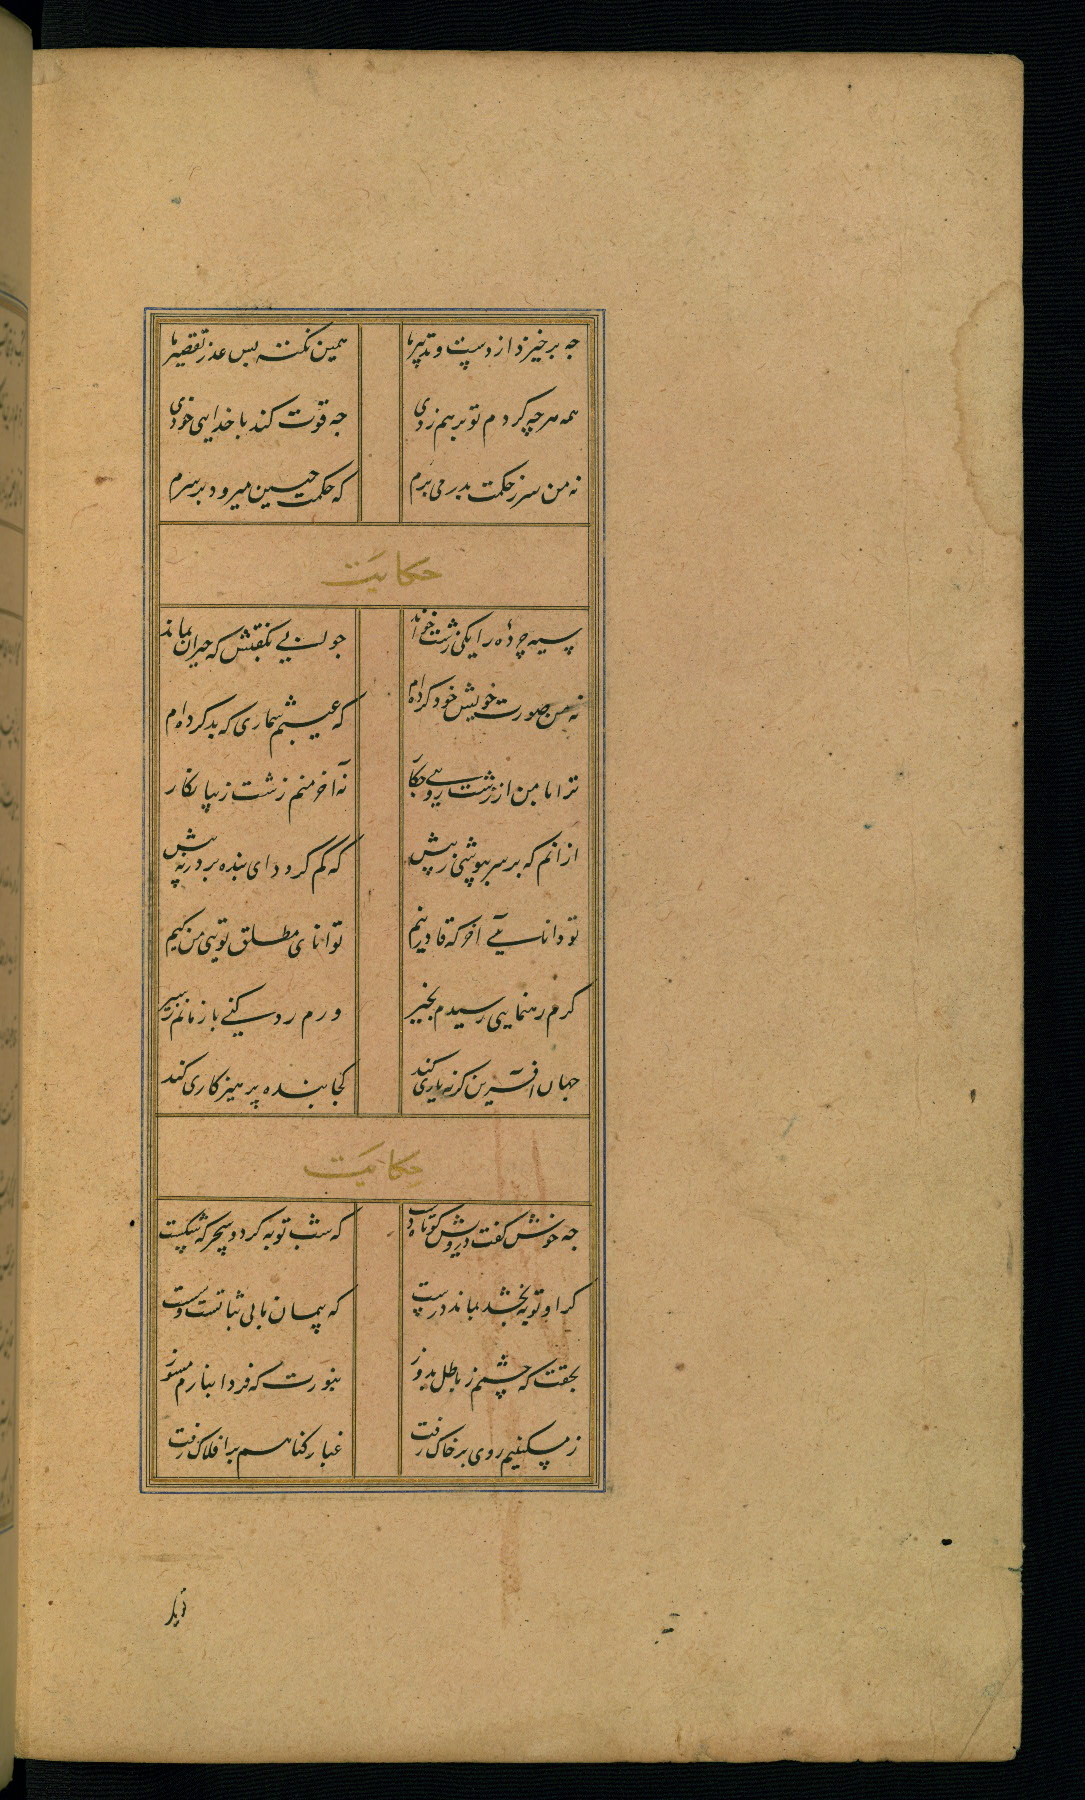 جه برخیزد از دست و تدبیر ما همین نکته بس عذر تقصیر ما
همه هرچه کردم تو برهم زدی جه قوت کند با خدایی خودی
نه من سر ز حکمت بدر می برم که حکمت جنین میرود بر سرم
حکایت
سیه چرده را یکی زشت خواند جوابی بگفتش که حیران بماند
نه من صورت خویش خود کرده ام که عیبم شماری که بد کرده ام
ترا با من ار زشت رویی جکار نه آخر منم زشت زیبا نکار
از انم که بر سر نبوشتی ز پیش نه کم کردد ای بنده برور نه پیش
تو دانایی آخر که قادر نیم توانای مطلق تویی من کیم
کرم رهنمایی رسیدم بخیر ورم رد کنی باز مانم ز سیر
جهان آفرین کر نه یاری کند کجا بنده پرهیز کاری کند
حکایت
جه خوش کفت درویش کوتاه دست که شب توبه کرد و سحر که شکست
کر او توبه بخشد بماند درست که پیمان ما بی ثباتست و سست
بحقت که چشم ز باطل بدوز بنورت که فردا بنارم مسوز
ز مسکینیم روی بر خاک رفت غبار کناهم بر افلاک رفت